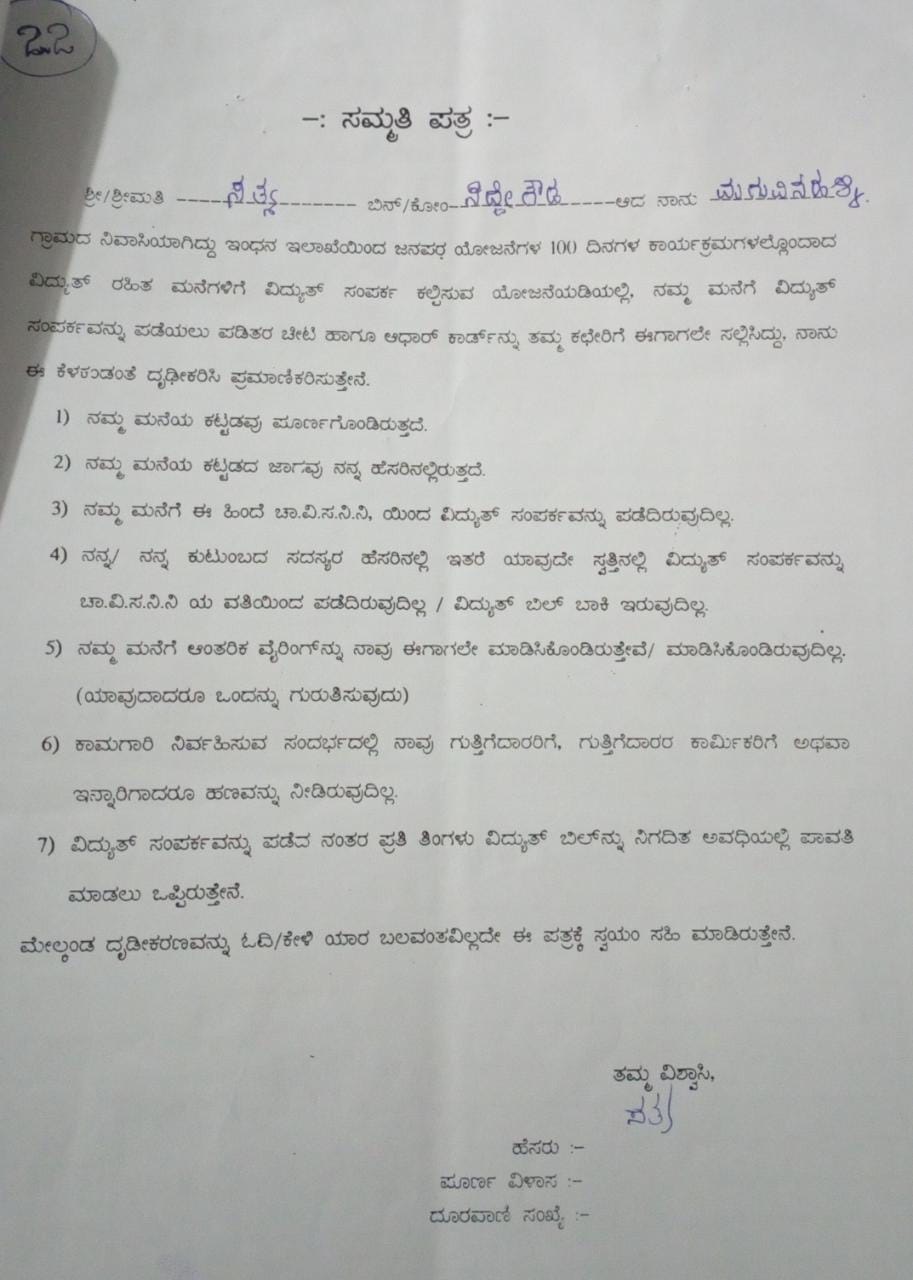 ೭೭
-: ಸಮ್ಮತಿ ಪತ್ರ :-
ಶ್ರೀ/ಶ್ರೀಮತಿ ----ಸತ್ಯ------- ಬಿನ್/ಕೋಂ-ಸಿದ್ದೇಗೌಡ-----ಆದ ನಾನು ಮಗುವಿನಹಳ್ಳಿ.
ಗ್ರಾಮದ ನಿವಾಸಿಯಾಗಿದ್ದು ಇಂಧನ ಇಲಾಖೆಯಿಂದ ಜನಪರ ಯೋಜನೆಗಳ 100 ದಿನಗಳ ಕಾರ್ಯಕ್ರಮಗಳಲ್ಲೊಂದಾದ
ವಿದ್ಯುತ್ ರಹಿತ ಮನೆಗಳಿಗೆ ವಿದ್ಯುತ್ ಸಂಪರ್ಕ ಕಲ್ಪಿಸುವ ಯೋಜನೆಯಡಿಯಲ್ಲಿ, ನಮ್ಮ ಮನೆಗೆ ವಿದ್ಯುತ್
ಸಂಪರ್ಕವನ್ನು ಪಡೆಯಲು ಪಡಿತರ ಚೀಟಿ ಹಾಗೂ ಆಧಾರ್ ಕಾರ್ಡ್‌ನ್ನು ತಮ್ಮ ಕಛೇರಿಗೆ ಈಗಾಗಲೇ ಸಲ್ಲಿಸಿದ್ದು, ನಾನು
ಈ ಕೆಳಕಂಡಂತೆ ದೃಢೀಕರಿಸಿ ಪ್ರಮಾಣಿಕರಿಸುತ್ತೇನೆ.
1) ನಮ್ಮ ಮನೆಯ ಕಟ್ಟಡವು ಪೂರ್ಣಗೊಂಡಿರುತ್ತದೆ.
2) ನಮ್ಮ ಮನೆಯ ಕಟ್ಟಡದ ಜಾಗವು ನನ್ನ ಹೆಸರಿನಲ್ಲಿರುತ್ತದೆ.
3) ನಮ್ಮ ಮನೆಗೆ ಈ ಹಿಂದೆ ಚಾ.ವಿ.ಸ.ನಿ.ನಿ, ಯಿಂದ ವಿದ್ಯುತ್ ಸಂಪರ್ಕವನ್ನು ಪಡೆದಿರುವುದಿಲ್ಲ.
4) ನನ್ನ/ ನನ್ನ ಕುಟುಂಬದ ಸದಸ್ಯರ ಹೆಸರಿನಲ್ಲಿ ಇತರೆ ಯಾವುದೇ ಸ್ವತ್ತಿನಲ್ಲಿ ವಿದ್ಯುತ್ ಸಂಪರ್ಕವನ್ನು
ಚಾ.ವಿ.ಸ.ನಿ.ನಿ ಯ ವತಿಯಿಂದ ಪಡೆದಿರುವುದಿಲ್ಲ / ವಿದ್ಯುತ್ ಬಿಲ್ ಬಾಕಿ ಇರುವುದಿಲ್ಲ.
5) ನಮ್ಮ ಮನೆಗೆ ಆಂತರಿಕ ವೈರಿಂಗ್‌ನ್ನು ನಾವು ಈಗಾಗಲೇ ಮಾಡಿಸಿಕೊಂಡಿರುತ್ತೇವೆ/ ಮಾಡಿಸಿಕೊಂಡಿರುವುದಿಲ್ಲ.
(ಯಾವುದಾದರೂ ಒಂದನ್ನು ಗುರುತಿಸುವುದು)
6) ಕಾಮಗಾರಿ ನಿರ್ವಹಿಸುವ ಸಂದರ್ಭದಲ್ಲಿ ನಾವು ಗುತ್ತಿಗೆದಾರರಿಗೆ, ಗುತ್ತಿಗೆದಾರರ ಕಾರ್ಮಿಕರಿಗೆ ಅಥವಾ
ಇನ್ನಾರಿಗಾದರೂ ಹಣವನ್ನು ನೀಡಿರುವುದಿಲ್ಲ.
7) ವಿದ್ಯುತ್ ಸಂಪರ್ಕವನ್ನು ಪಡೆದ ನಂತರ ಪ್ರತಿ ತಿಂಗಳು ವಿದ್ಯುತ್ ಬಿಲ್‌ನ್ನು ನಿಗದಿತ ಅವಧಿಯಲ್ಲಿ ಪಾವತಿ
ಮಾಡಲು ಒಪ್ಪಿರುತ್ತೇನೆ.
ಮೇಲ್ಕಂಡ ದೃಢೀಕರಣವನ್ನು ಓದಿ/ಕೇಳಿ ಯಾರ ಬಲವಂತವಿಲ್ಲದೇ ಈ ಪತ್ರಕ್ಕೆ ಸ್ವಯಂ ಸಹಿ ಮಾಡಿರುತ್ತೇನೆ.
ತಮ್ಮ ವಿಶ್ವಾಸಿ,
ಸತ್ಯ
ಹೆಸರು :-
ಪೂರ್ಣ ವಿಳಾಸ :-
ದೂರವಾಣಿ ಸಂಖ್ಯೆ :-